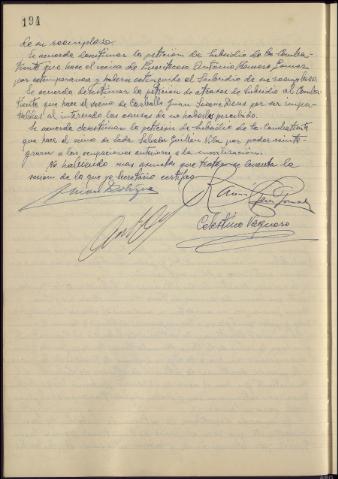 194
de su reemplazo.
Se acuerda desestimar la petición de Subsidio de Ex-Comba-
tiente que hace el vecino de Antonio
por estar y haberse extinguido el Subsidio de su reemplazo.
Se acuerda desestimar la petición de atrasos de Subsidio al Comba-
tiente que hace el vecino de Carballo Juan por ser impu-
table al interesado las causas de no haberlo percibido.
Se acuerda desestimar la petición de subsidio de Ex-Combatiente
que hace el vecino de Salvador Guillén Vila por poder reinte-
grarse a las ocupaciones anteriores a la movilización.
No habiendo mas asuntos que tratar se levanta la
sesion de la que yo Secretario certifico.
Ramón
Celestino Vaquero